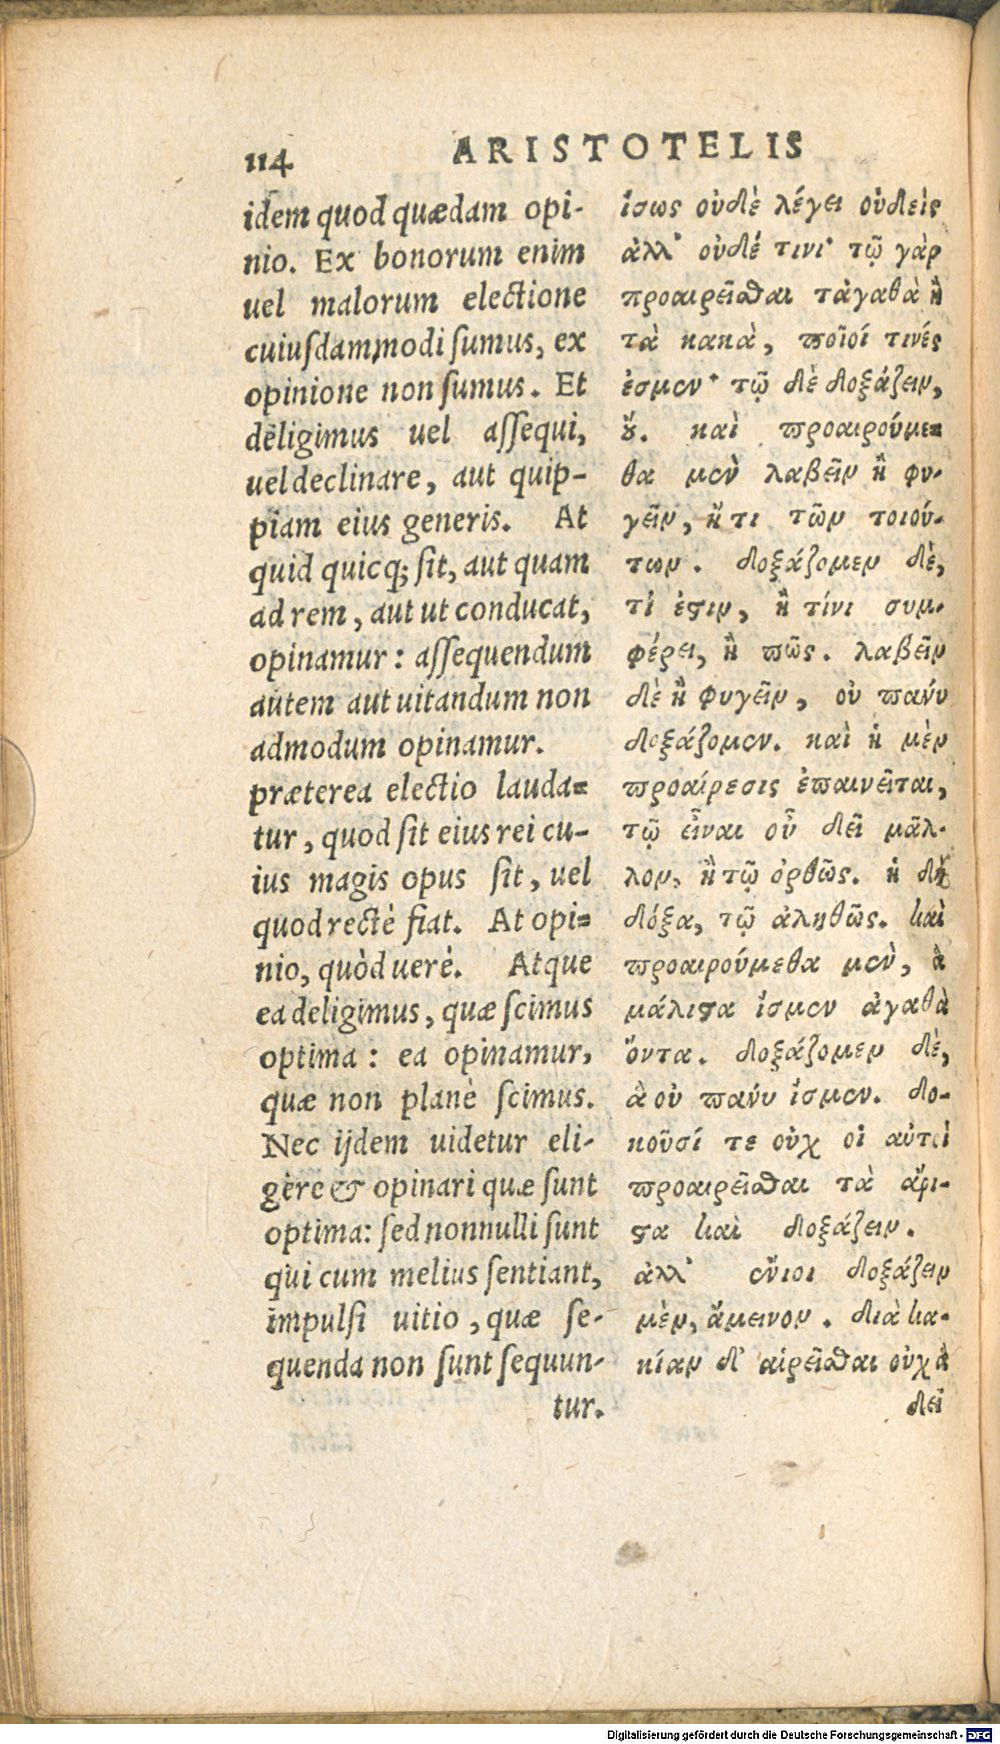 114 ARISTOTELIS
idem quod quædam opi-
nio. Ex bonorum enim
uel malorum electione
cuiusdammodi sumus, ex
opinione non sumus. Et
deligimus uel assequi,
uel declinare, aut quip-
piam eius generis. At
quid quicq; sit, aut quam
ad rem, aut ut conducat,
opinamur: assequendum
autem aut uitandum non
admodum opinamur.
præterea electio lauda=
tur, quod sit eius rei cu-
ius magis opus sit, uel
quod rectè fiat. At opi=
nio, quòd uerè. Atque
ea deligimus, quæ scimus
optima: ea opinamur,
quæ non planè scimus.
Nec ijdem uidetur eli-
gere & opinari quæ sunt
optima: sed nonnulli sunt
qui cum melius sentiant,
impulsi uitio, quæ se-
quenda non sunt sequun-
tur.
ἴσως οὐδὲ λέγει οὐδεὶς
ἀλλ' οὐδέ τινι· τῷ γὰρ
προαιρεῖσθαι τἀγαθὰ ἢ
τὰ κακὰ, ποῖοί τινές
ἐσμεν· τῷ δὲ δοξάζειν,
οὔ. καὶ προαιρούμε=
θα μὲν λαβεῖν ἢ φυ-
γεῖν, ἤ τι τῶν τοιού-
των. δοξάζομεν δὲ,
τί ἐστιν, ἢ τίνι συμ-
φέρει, ἢ πῶς. λαβεῖν
δὲ ἢ φυγεῖν, οὐ πανύ
δοξάζομεν. καὶ ἡ μὲν
προαίρεσις ἐπαινεῖται,
τῷ εἶναι οὗ δεῖ μᾶλ-
λον, ἢ τῷ ὀρθῶς. ἡ δὲ
δόξα, τῷ ἀληθῶς. καὶ
προαιρούμεθα μὲν, ἃ
μάλιστα ἴσμεν ἀγαθὰ
ὄντα. δοξάζομεν δὲ,
ἃ οὐ πανύ ἴσμεν. δο-
κοῦσί τε οὐχ οἱ αὐτοὶ
προαιρεῖσθαι τὰ ἄρι-
στα καὶ δοξάζειν.
ἀλλ' ἔνιοι δοξάζειν
μὲν, ἄμεινον. διὰ κα-
κίαν δ' αἱρεῖσθαι οὐχ ἃ
δεῖ
Digitalisierung gefördert durch die Deutsche Forschungsgemeinschaft - DFG